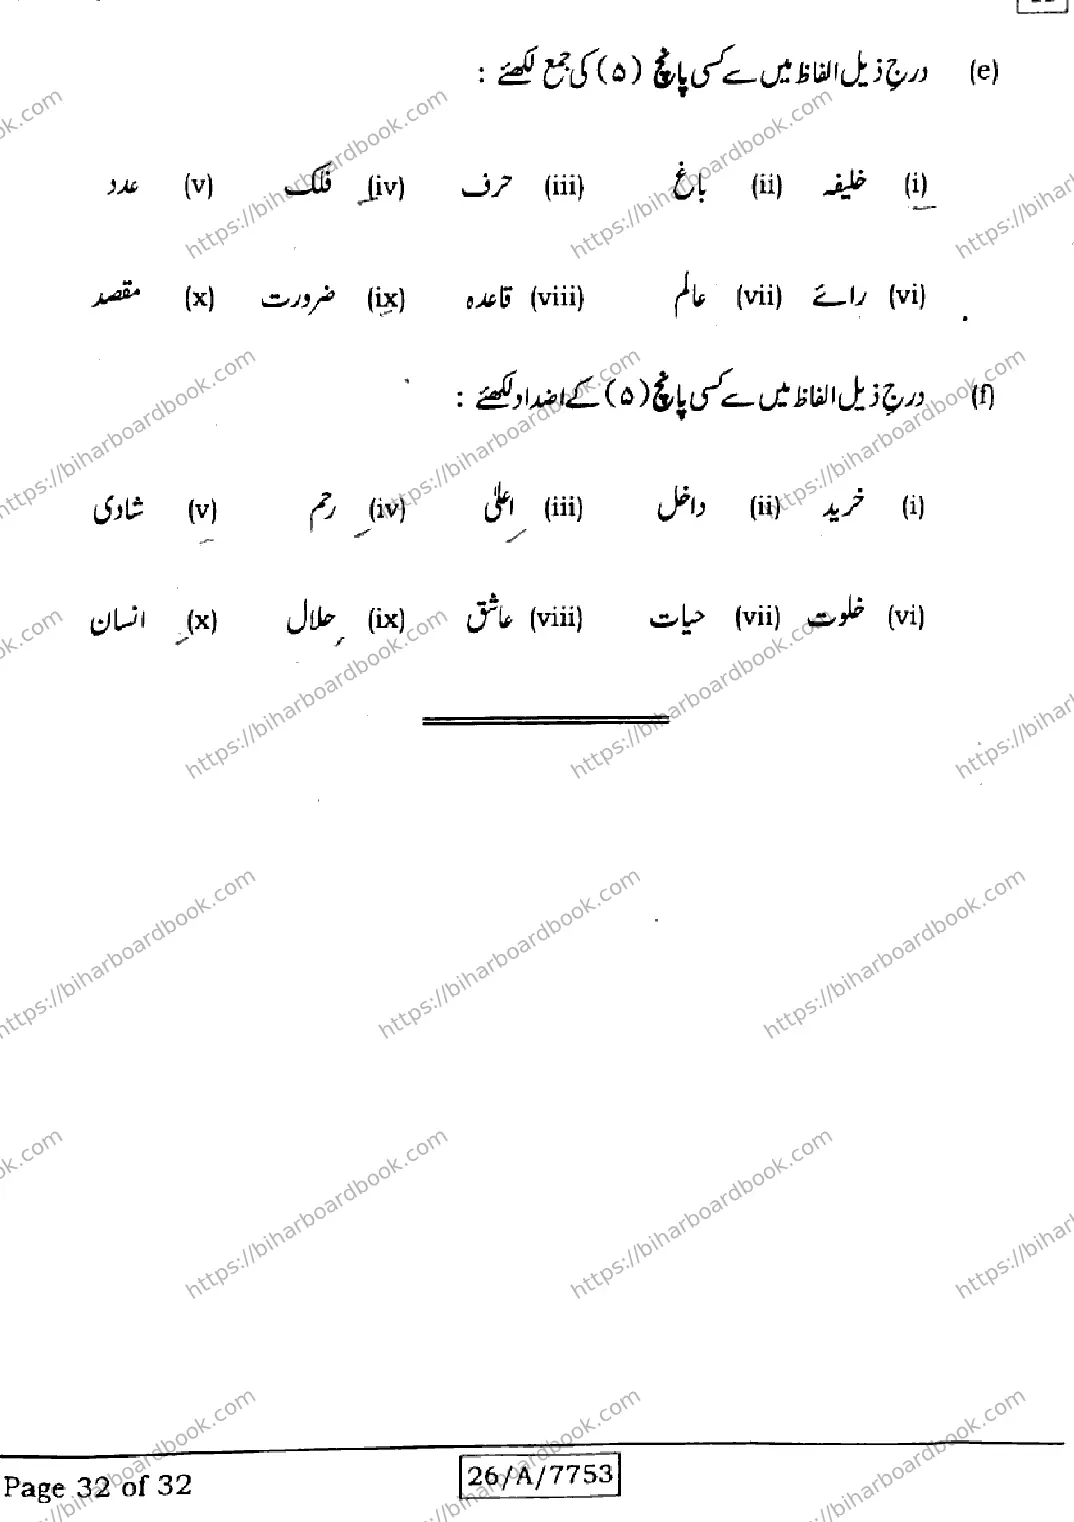 (e) درج ذیل الفاظ میں سے کسی پانچ (۵) کی جمع لکھئے :
(i) خلیفہ (ii) باغ (iii) حرف (iv) فلک (v) عدد
(vi) رائے (vii) عالم (viii) قاعدہ (ix) ضرورت (x) مقصد
(f) درج ذیل الفاظ میں سے کسی پانچ (۵) کے اضداد لکھئے :
(i) خرید (ii) داخل (iii) اعلیٰ (iv) رحم (v) شادی
(vi) خلوت (vii) حیات (viii) عاشق (ix) حلال (x) انسان
Page 32 of 32 26/A/7753
https://biharboardbook.com